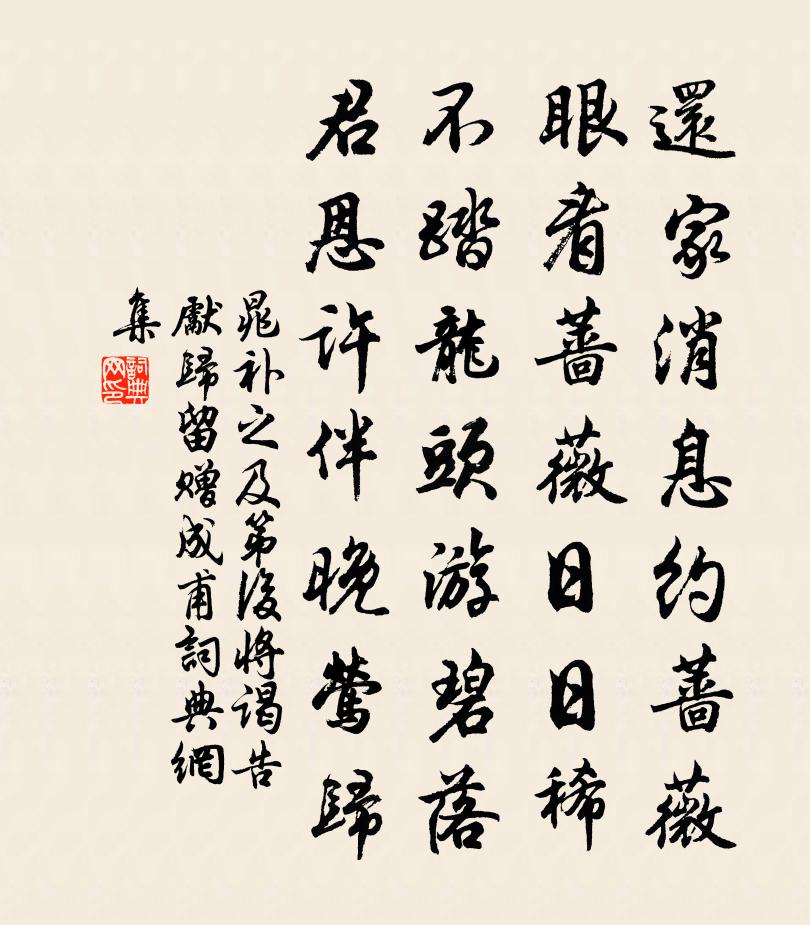 還家消息約薔薇
眼看薔薇日日稀
不踏龍頭游碧落
君恩許伴晚鶯歸
晁補之及第後將謁告
獻歸留贈成甫詞典網
集
詞典
网印